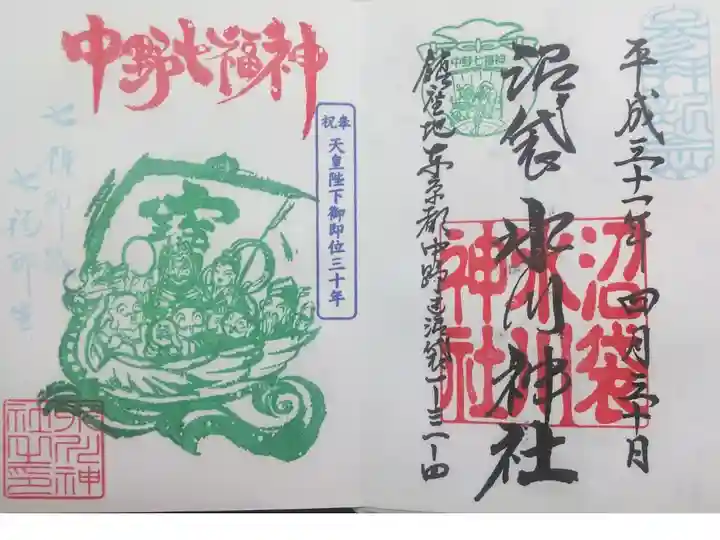 平成三十一年 四月三十日
沼袋 氷川神社
鎮座地 東京都中野区沼袋一ー三一ー四
中野七福神
沼袋
氷川
神社
中野七福神
奉祝 天皇陛下御即位三十年
寳
氷川神
社之印